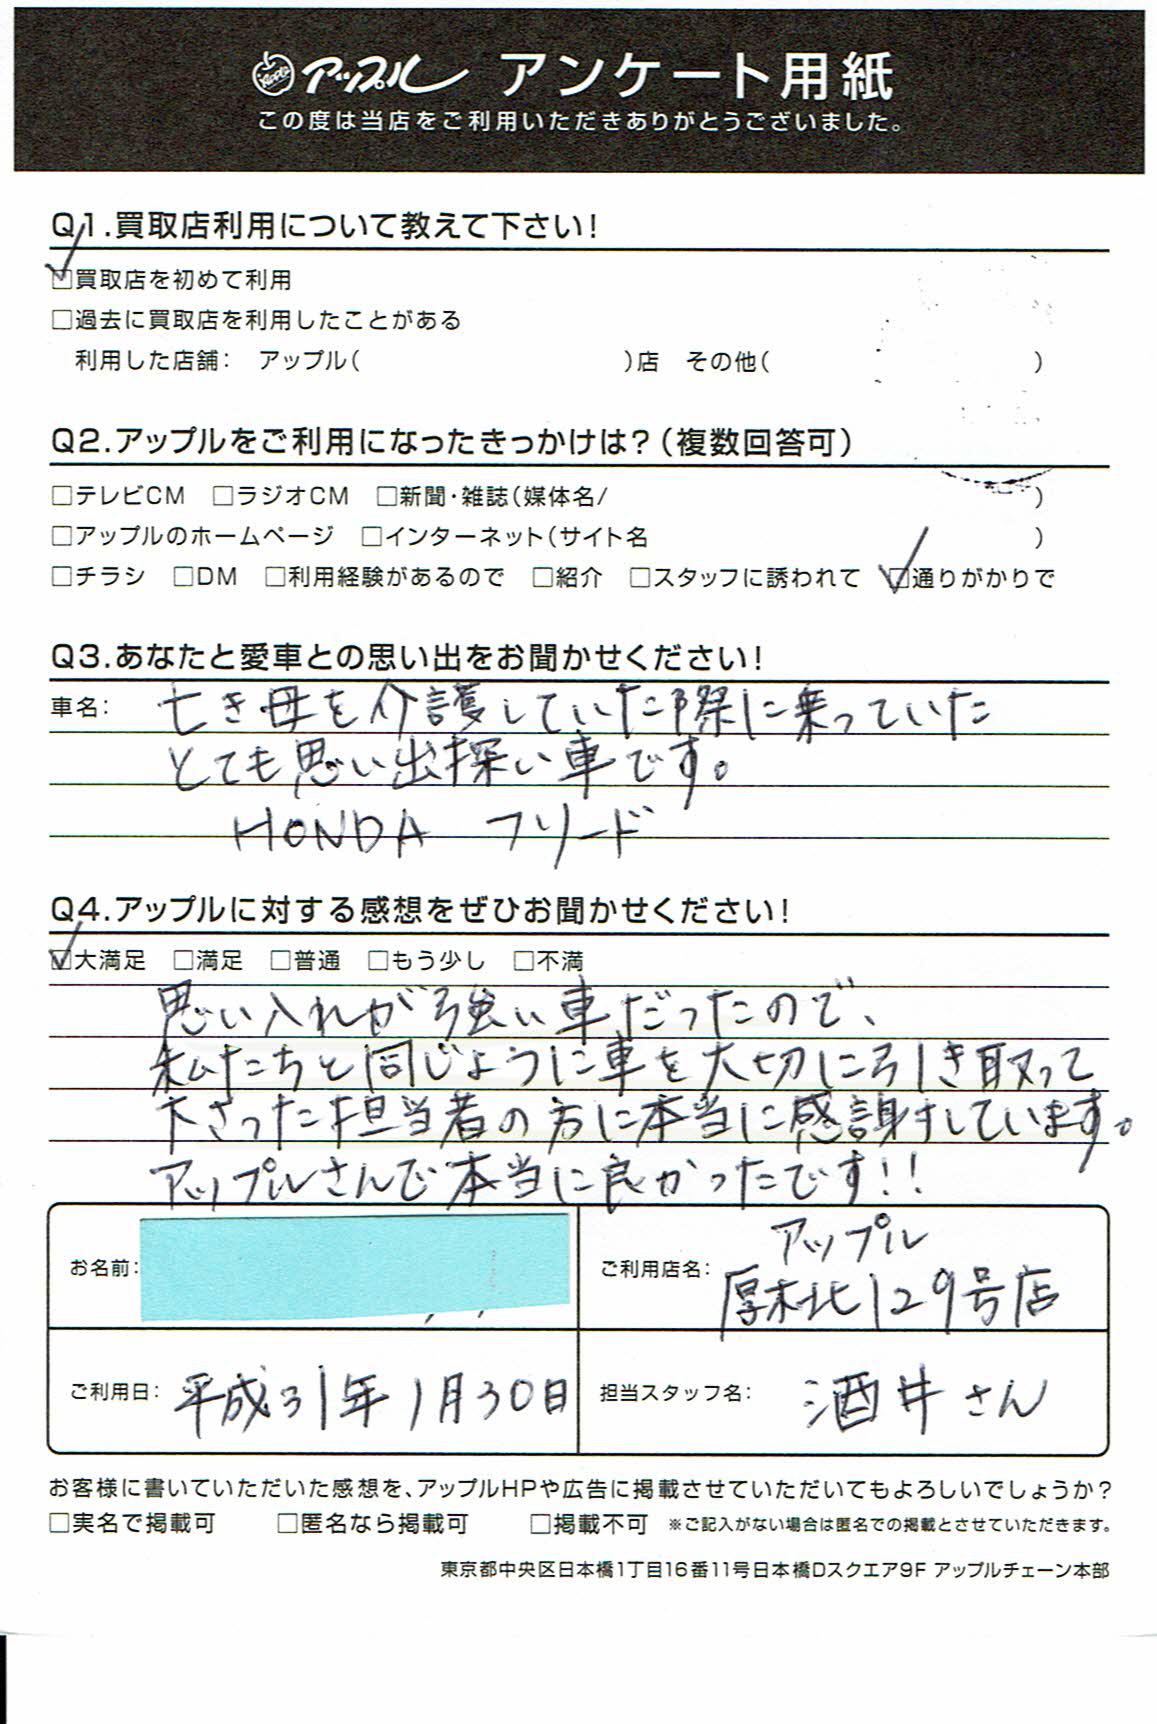 アップル アンケート用紙
この度は当店をご利用いただきありがとうございました。
Q1.買取店利用について教えて下さい!
☑買取店を初めて利用
□過去に買取店を利用したことがある
利用した店舗: アップル( )店 その他( )
Q2.アップルをご利用になったきっかけは?(複数回答可)
□テレビCM □ラジオCM □新聞・雑誌(媒体名/ )
□アップルのホームページ □インターネット(サイト名 )
□チラシ □DM □利用経験があるので □紹介 □スタッフに誘われて ☑通りがかりで
Q3.あなたと愛車との思い出をお聞かせください!
車名: 亡き母を介護していた際に乗っていた
とても思い出深い車です。
HONDA フリード
Q4.アップルに対する感想をぜひお聞かせください!
☑大満足 □満足 □普通 □もう少し □不満
思い入れが強い車だったので、
私たちと同じように車を大切に引き取って
下さった担当者の方に本当に感謝しています。
アップルさんで本当に良かったです!!
お名前:
ご利用店名: アップル
厚木北129号店
ご利用日: 平成31年1月30日
担当スタッフ名: 酒井さん
お客様に書いていただいた感想を、アップルHPや広告に掲載させていただいてもよろしいでしょうか?
□実名で掲載可 □匿名なら掲載可 □掲載不可 ※ご記入がない場合は匿名での掲載とさせていただきます。
東京都中央区日本橋1丁目16番11号日本橋Dスクエア9F アップルチェーン本部